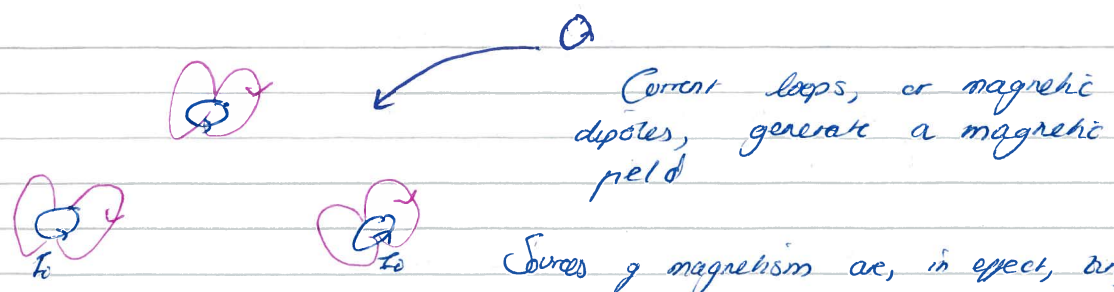 Current loops, or magnetic
dipoles, generate a magnetic
field
I₀ I₀
Sources of magnetism are, in effect,